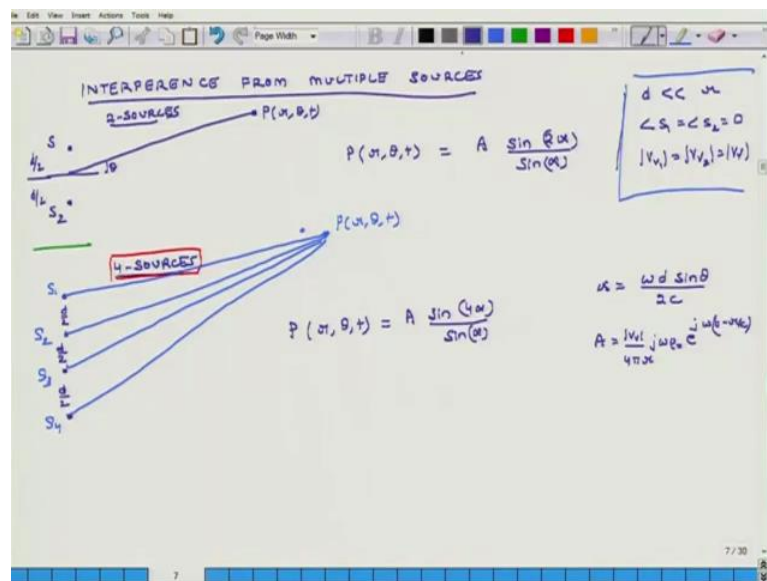 File Edit View Insert Actions Tools Help
Page Width
INTERFERENCE FROM MULTIPLE SOURCES
2-SOURCES
P(r,θ,t)
S
d/2
θ
d/2
S₂
P(r,θ,t) = A sin(2α) / sin(α)
d << r
∠S₁ = ∠S₂ = 0
|Vv₁| = |Vv₂| = |Vv|
4-SOURCES
P(r,θ,t)
S₁
d/2
S₂
d/2
S₃
d/2
S₄
P(r,θ,t) = A sin(4α) / sin(α)
α = ωd sinθ / 2c
A = |Vv| / 4πr jωρ₀ e^jω(t-r/c)
7
7 / 30